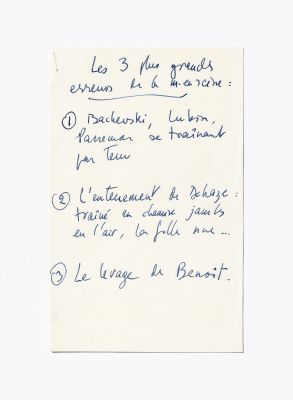 Les 3 plus grands
erreurs de la mise en scène :
① Bachevski, Lubin,
se traînant
par Terre
② L'enterrement de Dehaze :
traîné en chemise jambes
en l'air, la fille nue ...
③ Le levage de Benoît.